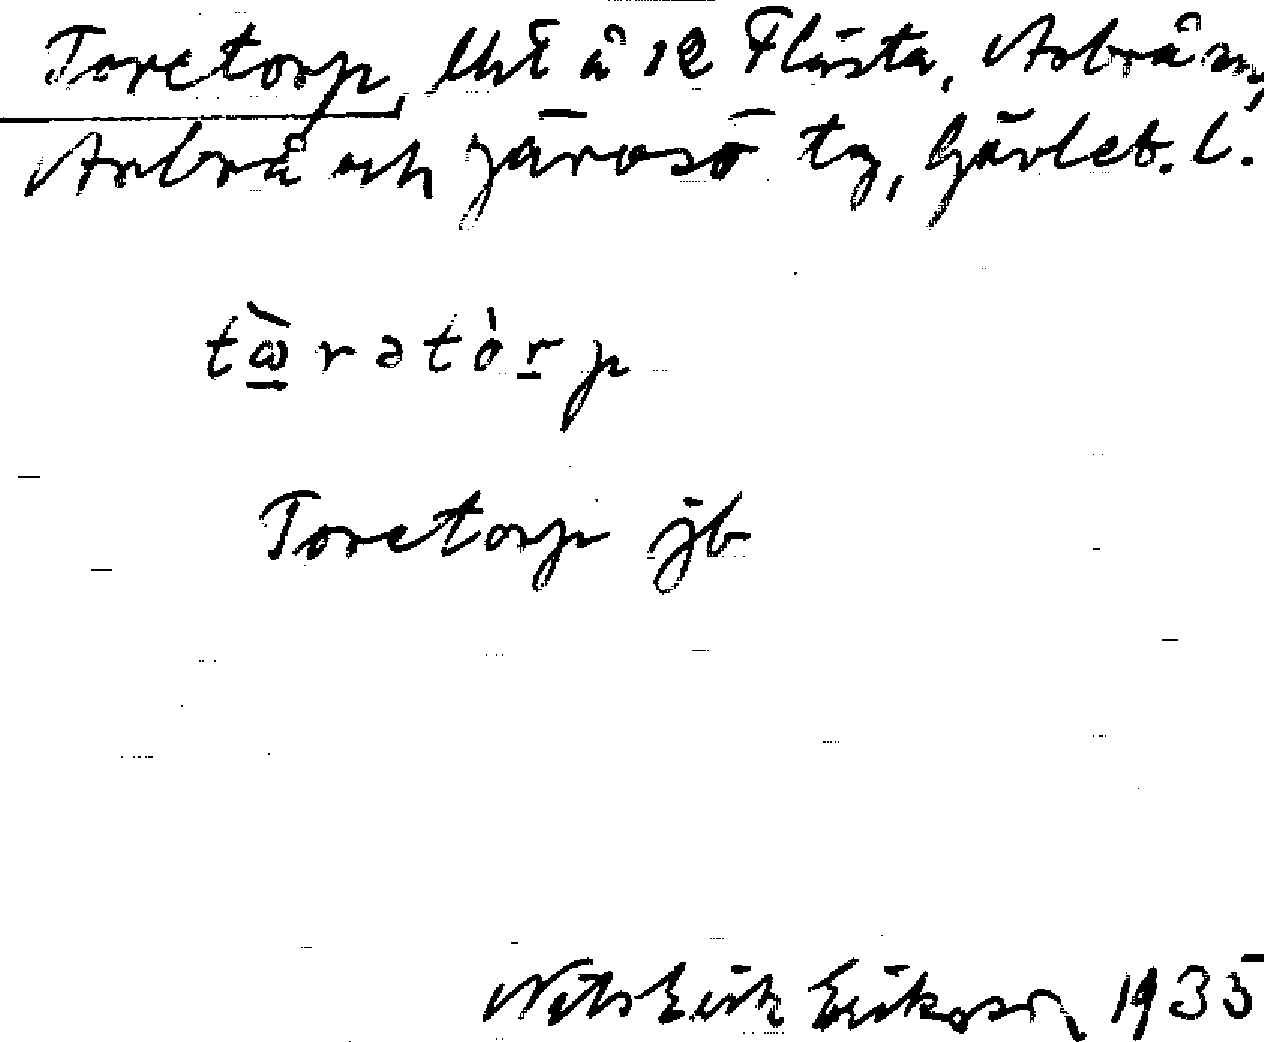 Toretorp, lht å 12 Flästa, Arbrå sn,
Arbrå och Järvsö tg, Gävleb. l.
tɷ̠̀rətòr̠p
Toretorp jb
Nils Erik Eriksson 1935